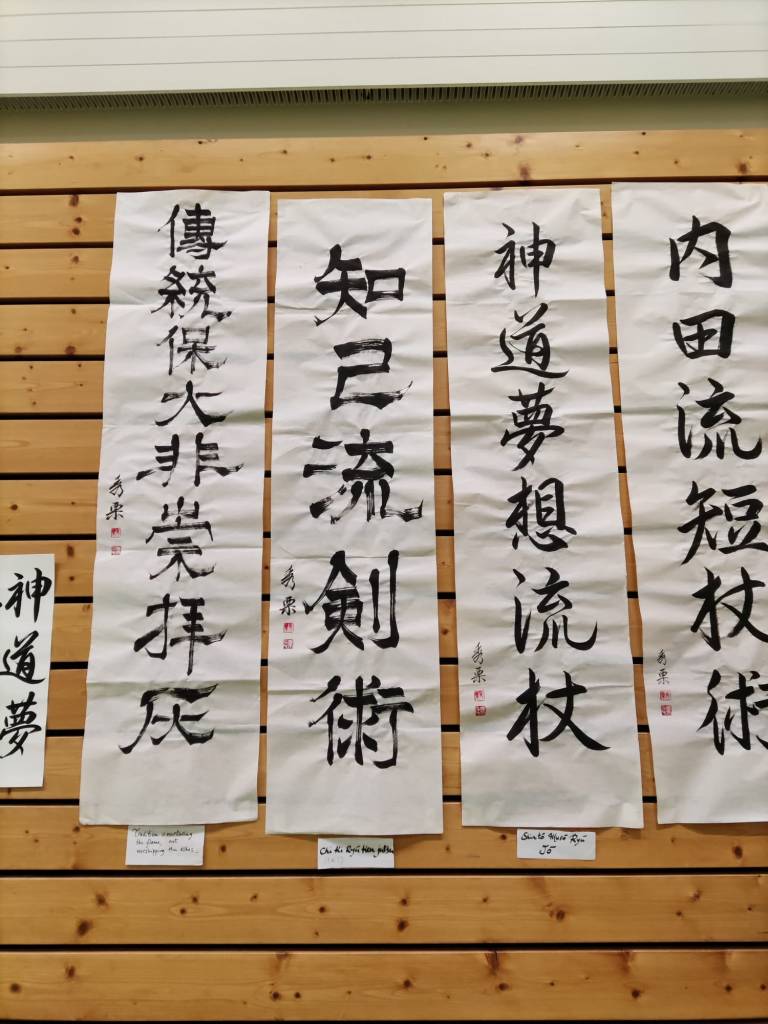 神道夢
傳統保火非崇拝灰
秀栗
the flame, not
worshipping the
知己流剣術
秀栗
神道夢想流杖
秀栗
Shintō Musō Ryū
Jō
内田流短杖術
秀栗